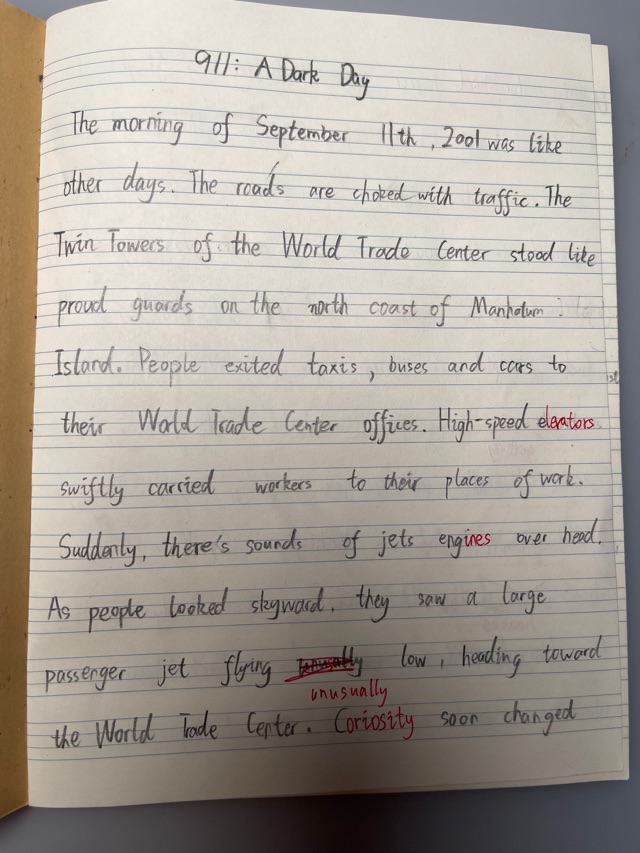 911: A Dark Day
The morning of September 11th, 2001 was like
other days. The roads are choked with traffic. The
Twin Towers of the World Trade Center stood like
proud guards on the north coast of Manhatum
Island. People exited taxis, buses and cars to
their World Trade Center offices. High-speed elerators
swiftly carried workers to their places of work.
Suddenly, there's sounds of jets engines over head.
As people looked skyward, they saw a large
passenger jet flying low, heading toward
unusually
the World Trade Center. Coriosity soon changed